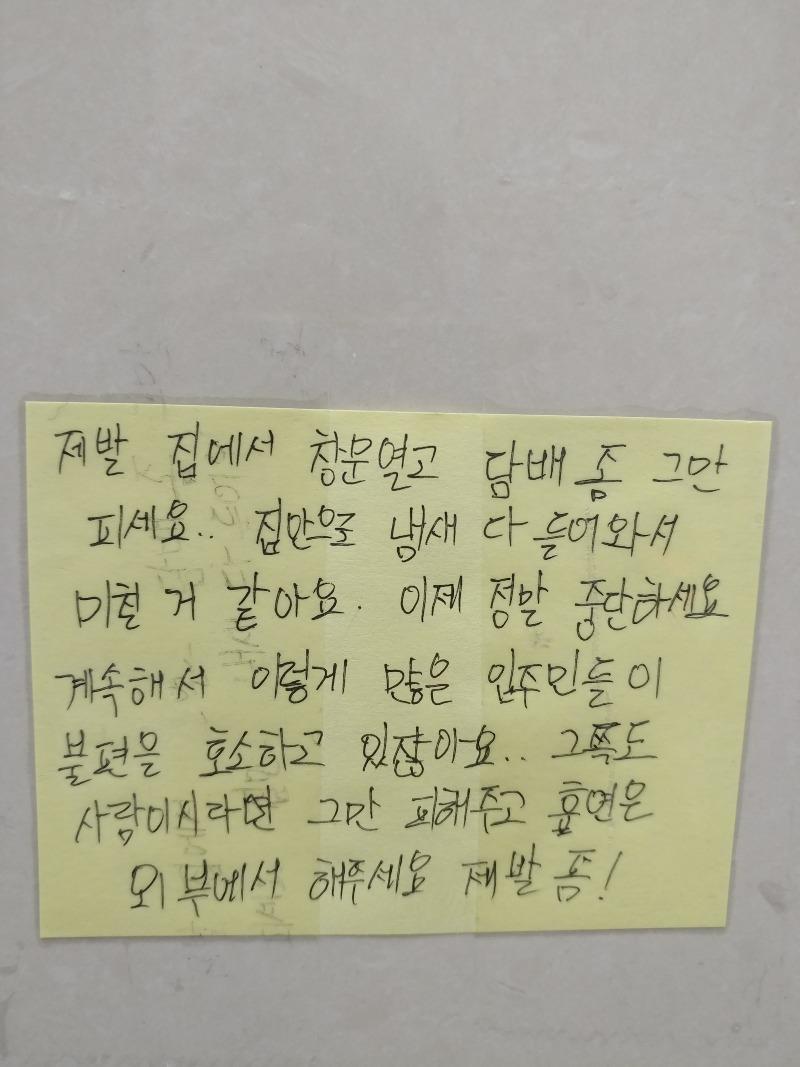 제발 집에서 창문열고 담배 좀 그만
피세요.. 집안으로 냄새 다 들어와서
미칠 거 같아요. 이제 정말 중단하세요
계속해서 이렇게 많은 입주민들이
불편을 호소하고 있잖아요.. 그쪽도
사람이시라면 그만 피해주고 흡연은
외부에서 해주세요 제발 쫌!